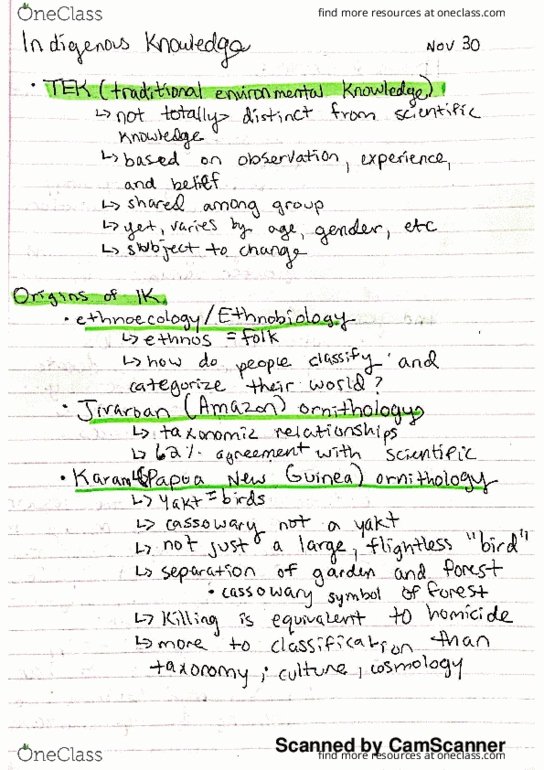 OneClass
find more resources at oneclass.com
Indigenous Knowledge
Nov 30
• TEK (traditional environmental Knowledge)
↳ not totally distinct from scientific
Knowledge
↳ based on observation, experience,
and belief
↳ shared among group
↳ yet, varies by age, gender, etc
↳ subject to change
Origins of IK
• ethnoecology/Ethnobiology
↳ ethnos = folk
↳ how do people classify and
categorize their world?
• Jivaroan (Amazon) ornithology
↳ taxonomic relationships
↳ 62% agreement with scientific
• Karam (Papua New Guinea) ornithology
↳ yakt = birds
↳ cassowary not a yakt
↳ not just a large, flightless "bird"
↳ separation of garden and forest
• cassowary symbol of forest
↳ Killing is equivalent to homicide
↳ more to classification than
taxonomy; culture, cosmology
Scanned by CamScanner
OneClass
find more resources at oneclass.com